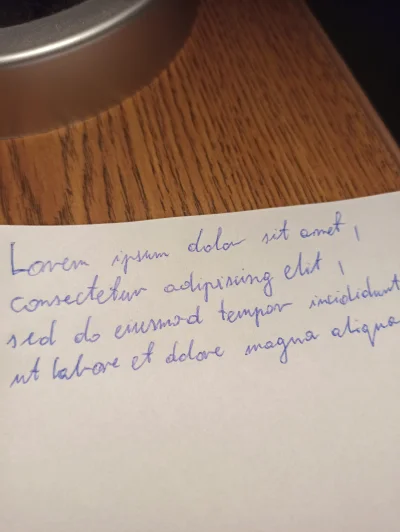 Lorem ipsum dolor sit amet,
consectetur adipiscing elit,
sed do eiusmod tempor incididunt
ut labore et dolore magna aliqua